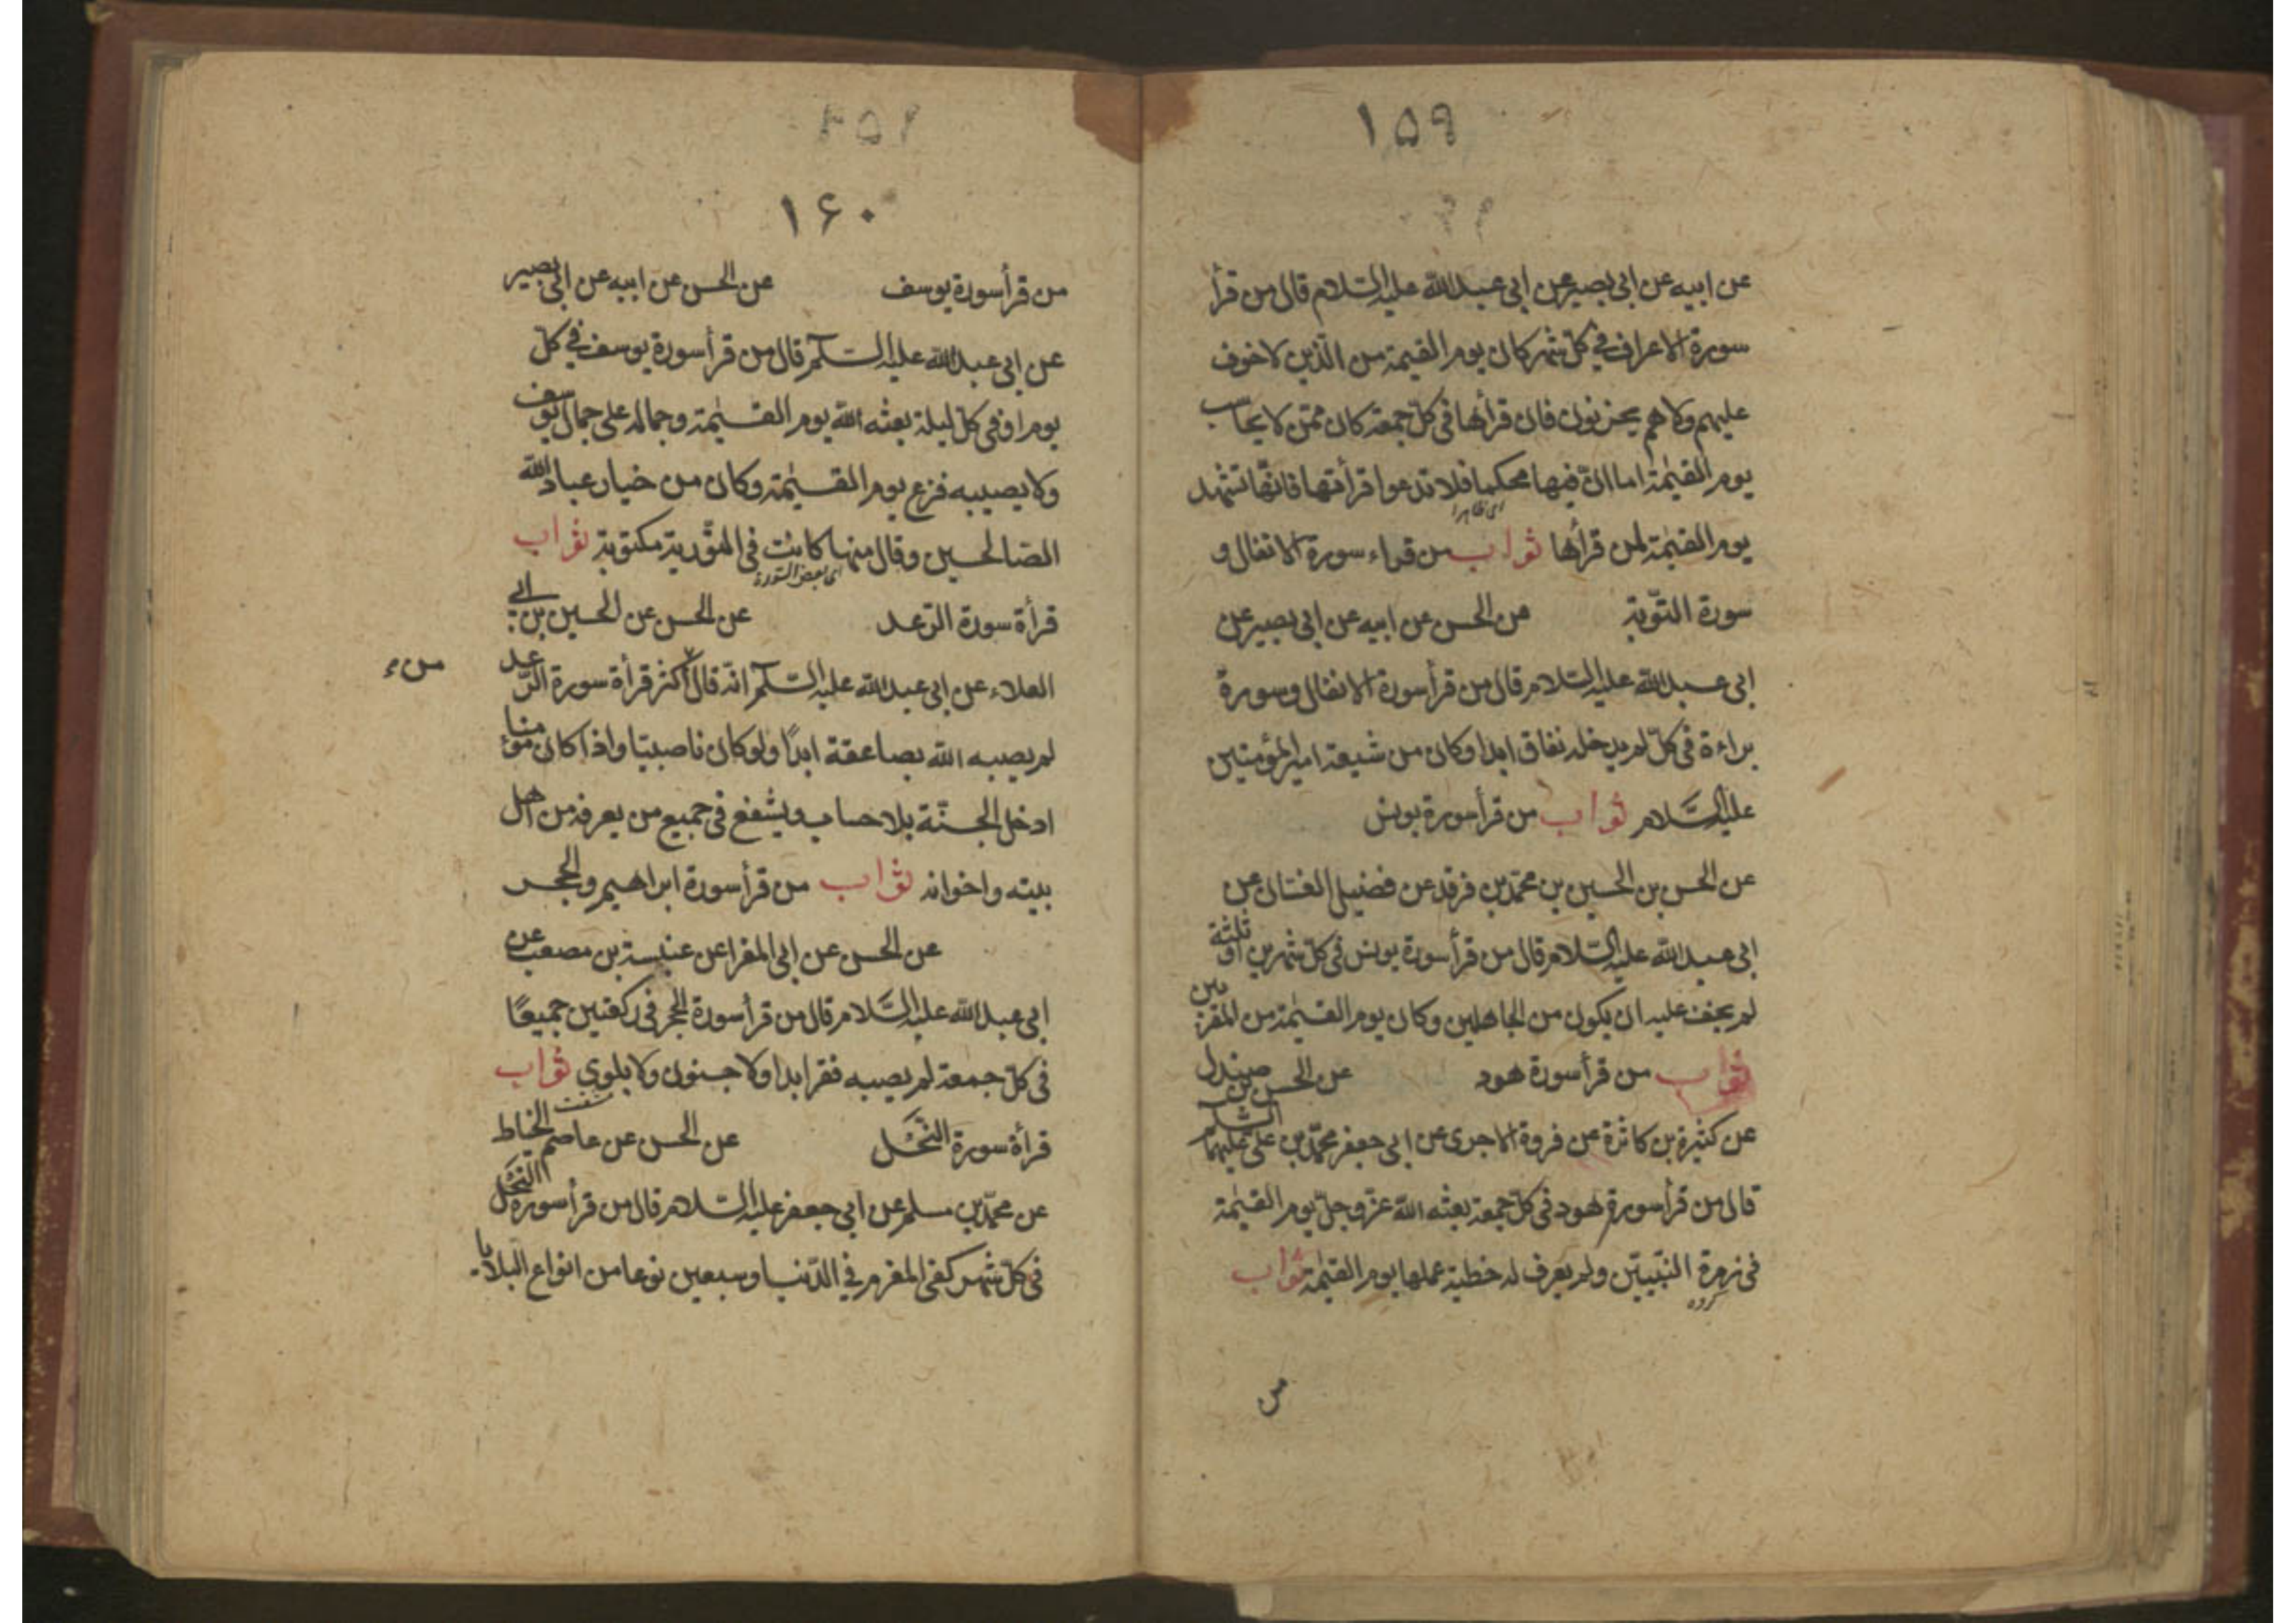 ١٥٩
عن ابيه عن ابى بصير عن ابى عبد الله عليه السلام قال من قرأ
سورة الاعراف فى كل شهر كان يوم القيمة من الذين لا خوف
عليهم ولا هم يحزنون فان قرأها فى كل جمعة كان ممن لا يحاسب
يوم القيمة اما ان فيها محكما فلا تدعوا قرأتها فانها تشهد
اى ظاهرا
يوم القيمة لمن قرأها ثواب من قراء سورة الانفال و
سورة التوبة عن الحسن عن ابيه عن ابى بصير عن
ابى عبد الله عليه السلام قال من قرأ سورة الانفال وسورة
براءة فى كل لم يدخله نفاق ابدا وكان من شيعة امير المؤمنين
عليه السلام ثواب من قرأ سورة يونس
عن الحسن بن الحسين بن محمد بن فرقد عن فضيل الغسان عن
ابى عبد الله عليه السلام قال من قرأ سورة يونس فى كل شهرين او ثلثة
لم يخف عليه ان يكون من الجاهلين وكان يوم القيمة من المقربين
ثواب من قرأ سورة هود عن الحسن بن صندل
عن كثيرة بن كاثرة عن فروة الاجرى عن ابى جعفر محمد بن على عليهما السلم
قال من قرأ سورة هود فى كل جمعة بعثه الله عز وجل يوم القيمة
فى زمرة النبيين ولم يعرف له خطية عملها يوم القيمة ثواب
گروه
من
١۶٠
من قرأ سورة يوسف عن الحسن عن ابيه عن ابى بصير
عن ابى عبد الله عليه السلم قال من قرأ سورة يوسف فى كل
يوم او فى كل ليلة بعثه الله يوم القيمة وجماله على جمال يوسف
ولا يصيبه فزع يوم القيمة وكان من خيار عباد الله
الصالحين وقال منها كانت فى التورية مكتوبة ثواب
اى بعض السورة
قرأة سورة الرعد عن الحسن عن الحسين بن ابى
العلاء عن ابى عبد الله عليه السلم انه قال اكثر قرأة سورة الرعد
من
لم يصيبه الله بصاعقة ابدا ولو كان ناصبيا واذا كان مؤمنا
ادخل الجنة بلا حساب ويشفع فى جميع من يعرفه من اهل
بيته واخوانه ثواب من قرأ سورة ابراهيم والحجر
عن الحسن عن ابى المغرا عن عنبسة بن مصعب عن
ابى عبد الله عليه السلام قال من قرأ سورة الحجر فى ركعتين جميعا
فى كل جمعة لم يصيبه فقر ابدا ولا جنون ولا بلوى ثواب
قرأة سورة النحل عن الحسن عن عاصم الخياط
عن محمد بن مسلم عن ابى جعفر عليه السلام قال من قرأ سورة النحل
فى كل شهر كفى المغرم فى الدنيا وسبعين نوعا من انواع البلايا